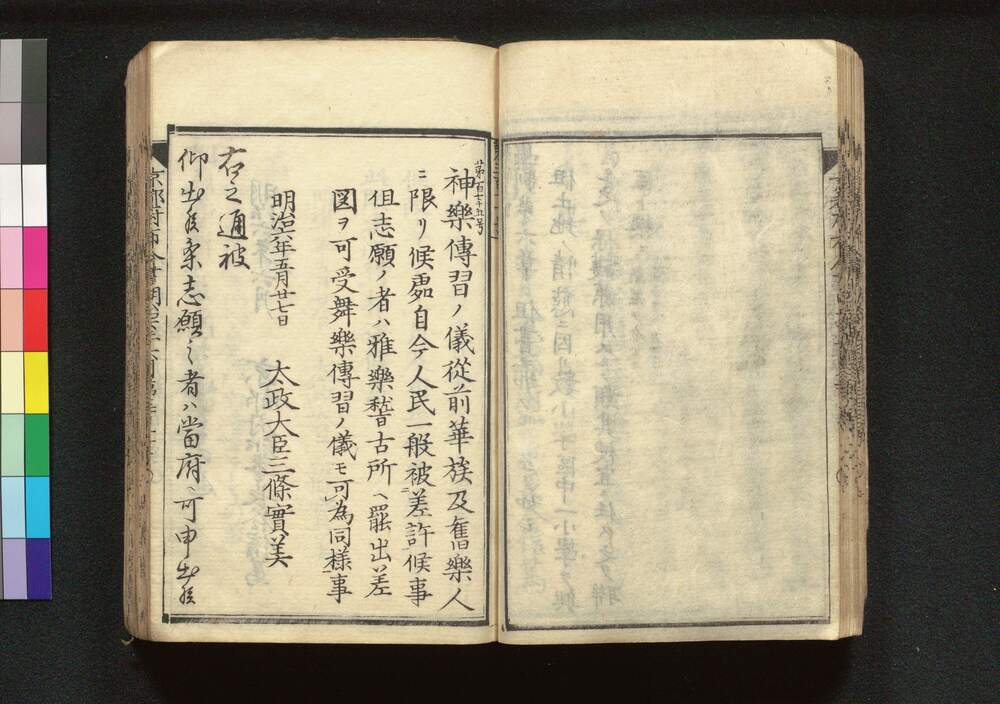 第百七十五号
神樂傳習ノ儀從前華族及舊樂人
ニ限リ候處自今人民一般被差許候事
但志願ノ者ハ雅樂稽古所ヘ罷出差
図ヲ可受舞樂傳習ノ儀モ可為同様事
明治六年五月廿七日
太政大臣三條實美
右之通被
仰出候条志願之者ハ當府ヘ可申出候